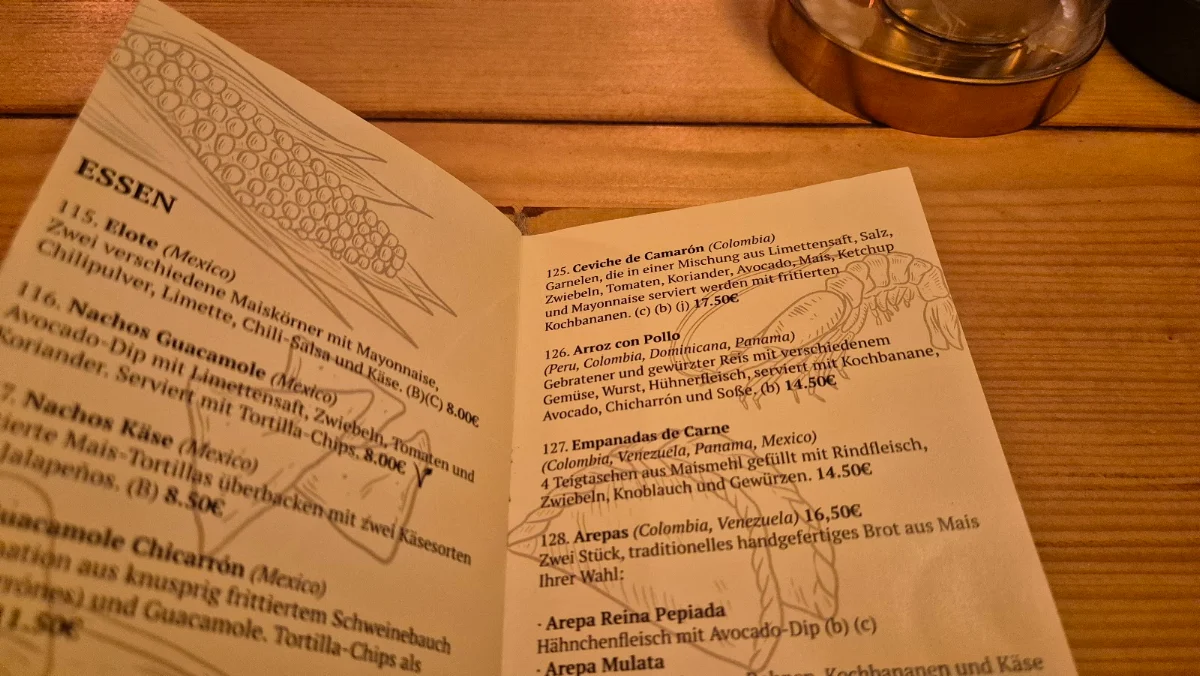 ESSEN
115. Elote (Mexico)
Zwei verschiedene Maiskörner mit Mayonnaise,
Chilipulver, Limette, Chili-Salsa und Käse. (B)(C) 8.00€
116. Nachos Guacamole (Mexico)
Avocado-Dip mit Limettensaft, Zwiebeln, Tomaten und
Koriander. Serviert mit Tortilla-Chips. 8.00€
7. Nachos Käse (Mexico)
Mais-Tortillas überbacken mit zwei Käsesorten
Jalapeños. (B) 8.50€
Guacamole Chicarrón (Mexico)
aus knusprig frittiertem Schweinebauch
und Guacamole. Tortilla-Chips als
11.50€
125. Ceviche de Camarón (Colombia)
Garnelen, die in einer Mischung aus Limettensaft, Salz,
Zwiebeln, Tomaten, Koriander, Avocado, Mais, Ketchup
und Mayonnaise serviert werden mit fritierten
Kochbananen. (c) (b) (j) 17.50€
126. Arroz con Pollo
(Peru, Colombia, Dominicana, Panama)
Gebratener und gewürzter Reis mit verschiedenem
Gemüse, Wurst, Hühnerfleisch, serviert mit Kochbanane,
Avocado, Chicharrón und Soße. (b) 14.50€
127. Empanadas de Carne
(Colombia, Venezuela, Panama, Mexico)
4 Teigtaschen aus Maismehl gefüllt mit Rindfleisch,
Zwiebeln, Knoblauch und Gewürzen. 14.50€
128. Arepas (Colombia, Venezuela) 16,50€
Zwei Stück, traditionelles handgefertiges Brot aus Mais
Ihrer Wahl:
· Arepa Reina Pepiada
Hähnchenfleisch mit Avocado-Dip (b) (c)
· Arepa Mulata
Kochbananen und Käse